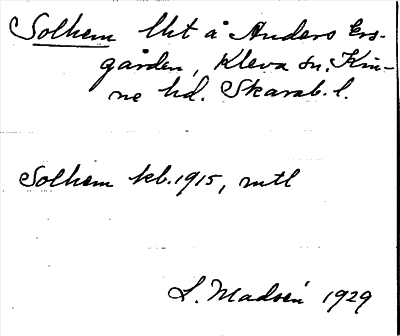 Solhem lht å Anders Ers-
gården, Kleva sn, Kin-
ne hd. Skarab. l.
Solhem kb. 1915, mtl
L. Madsén 1929